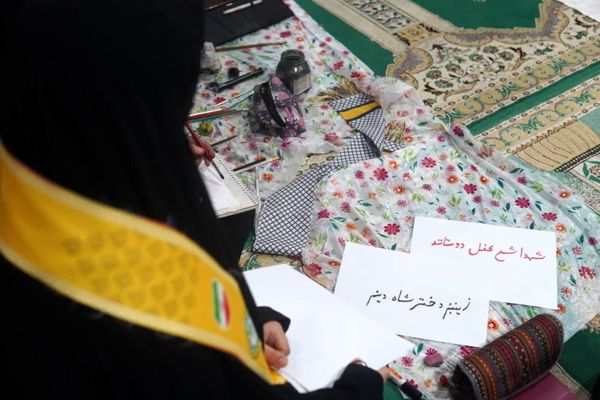 شهدا شمع محفل دوستانند
زینبم دختر شاه دینم